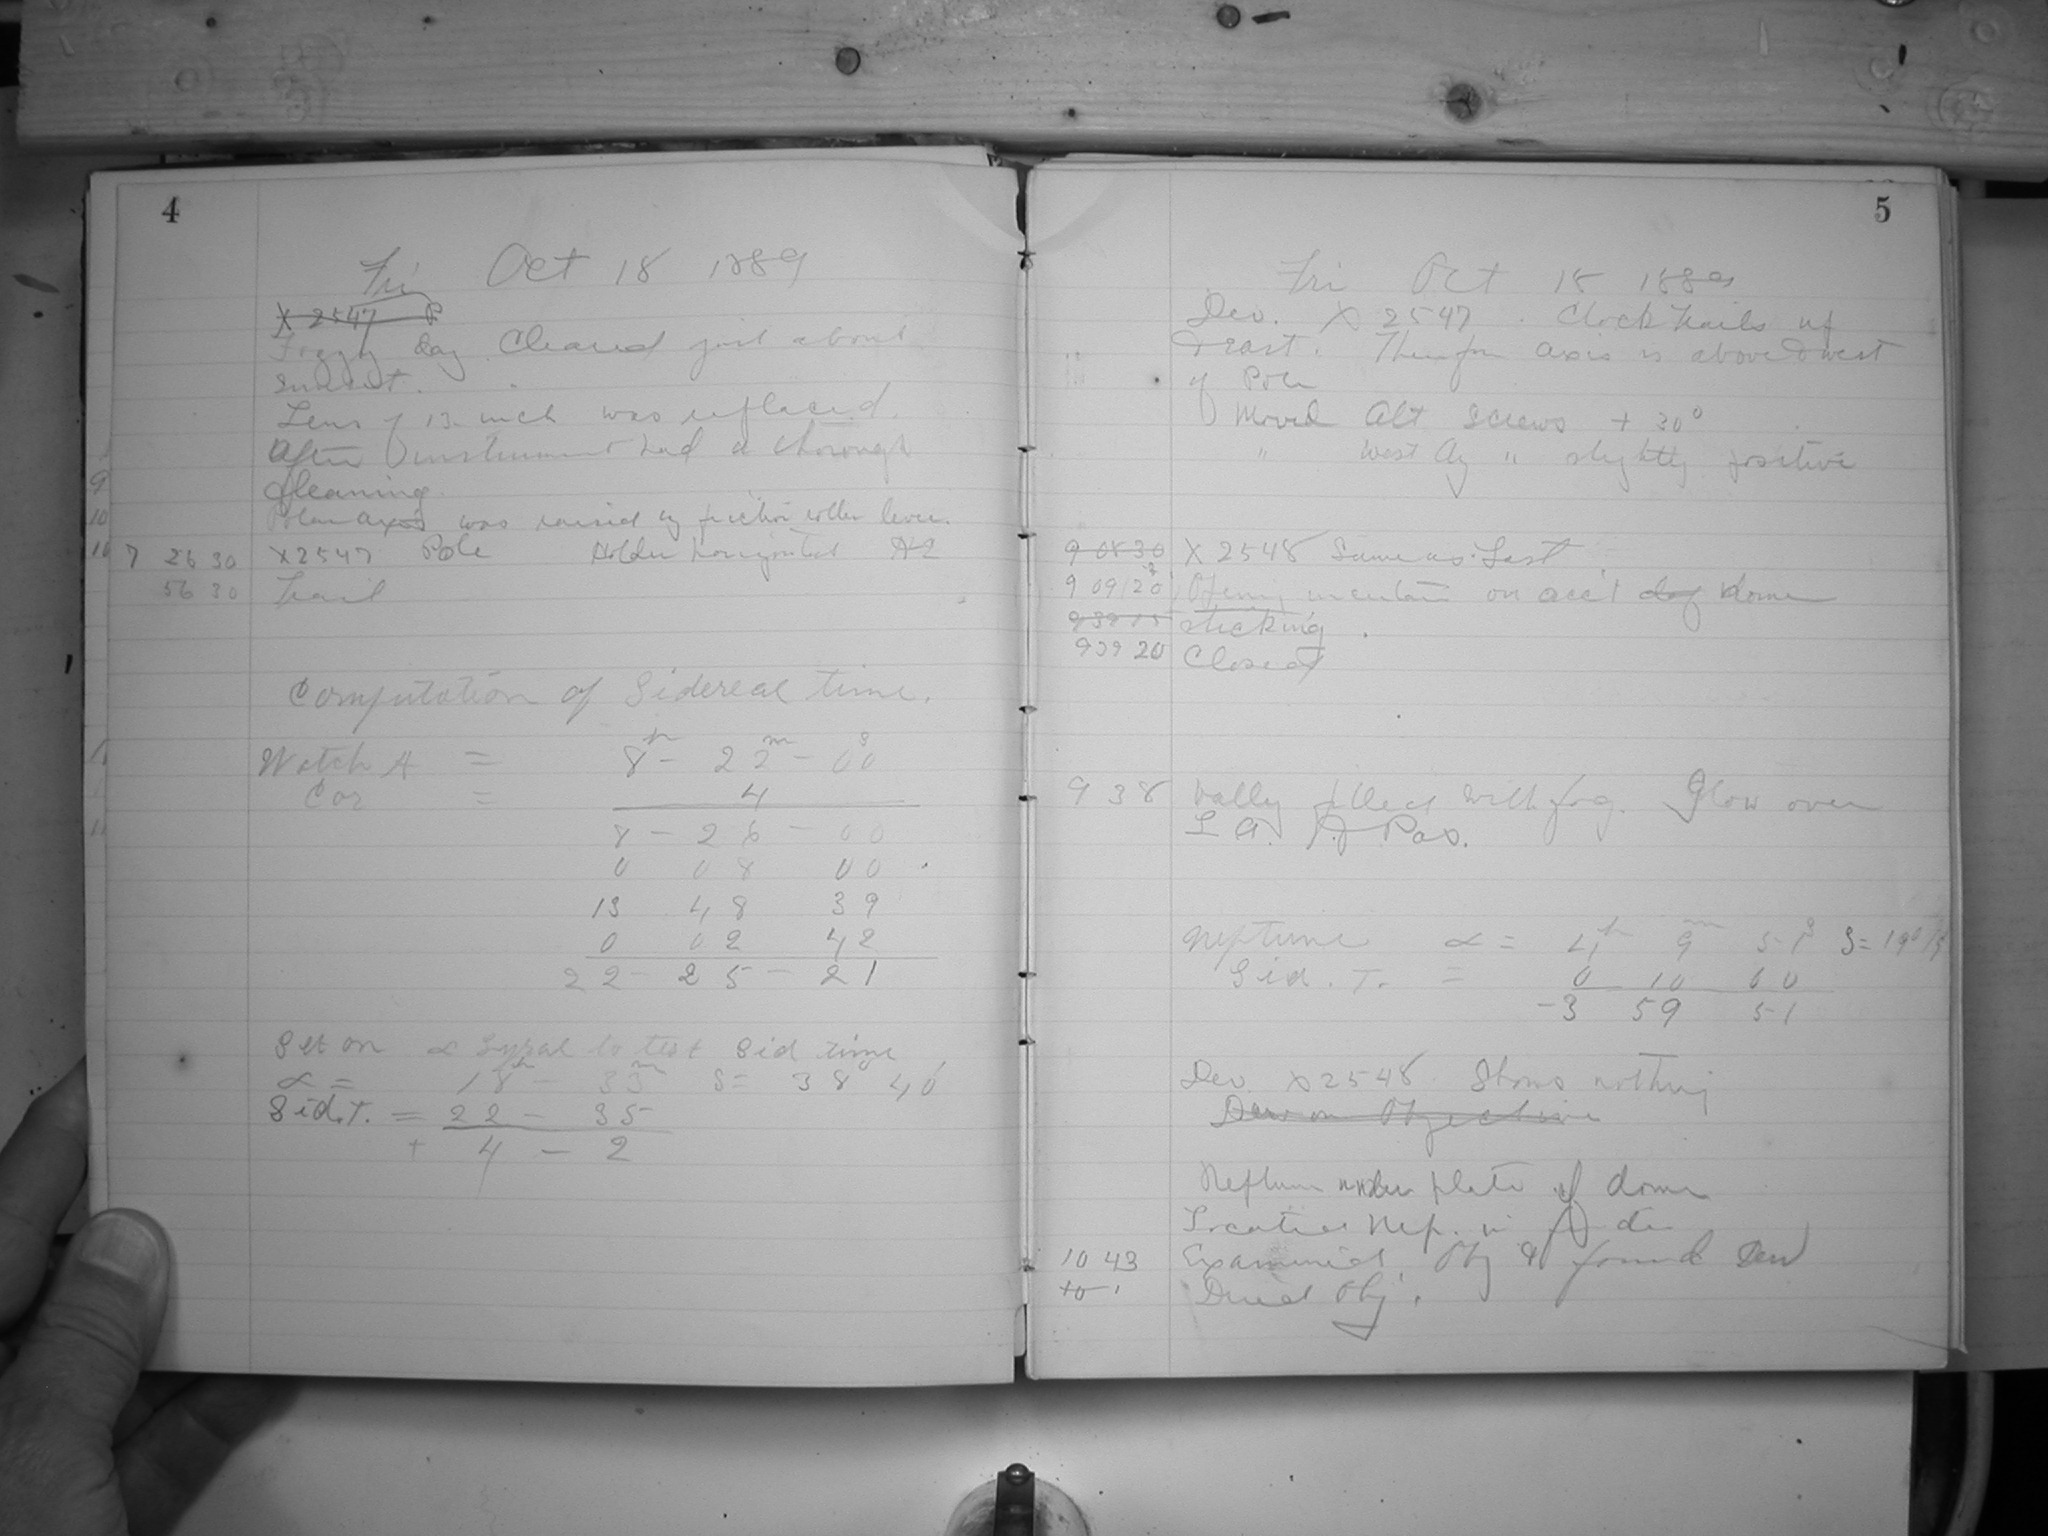 4
Fri Oct 18 1889
X 2547 P
Foggy day. Cleared just about
sunset.
Lens of 13 inch was replaced.
After instrument had a thorough
cleaning.
Polar axis was raised by friction roller lever.
7 26 30 X2547 Pole Holder horizontal
56 30 Trail
Computation of Sidereal time.
Watch A = 8h - 22m - 00s
Cor = 4
8 - 26 - 00
0 08 00
13 48 39
0 02 42
22 - 25 - 21
Set on α Lyrae to test Sid time
α = 18h - 33m δ = 38° 40
Sid. T. = 22 - 35
+ 4 - 2
9
10
10
5
Fri Oct 18 1889
Dev. X 2547. Clock trails up
& east. Therefore axis is above & west
of Pole
Moved Alt Screws + 30°
" West Az " slightly positive
9 08 30 X 2548 Same as Last
9 09 20 Opening uncertain on acc't dome
9 39 15 sticking.
9 39 20 Closed
9 38 Vally filled with fog. Glow over
L A. & Pas.
Neptune α = 4h 9m 51s δ = 19°
Sid. T. = 0 10 00
-3 59 51
Dev. X 2548. Shows nothing
Dew on Objective
Neptune under plate of dome
Nep. in
10 43 Examined Obj & found Dew
10 Dried Obj.